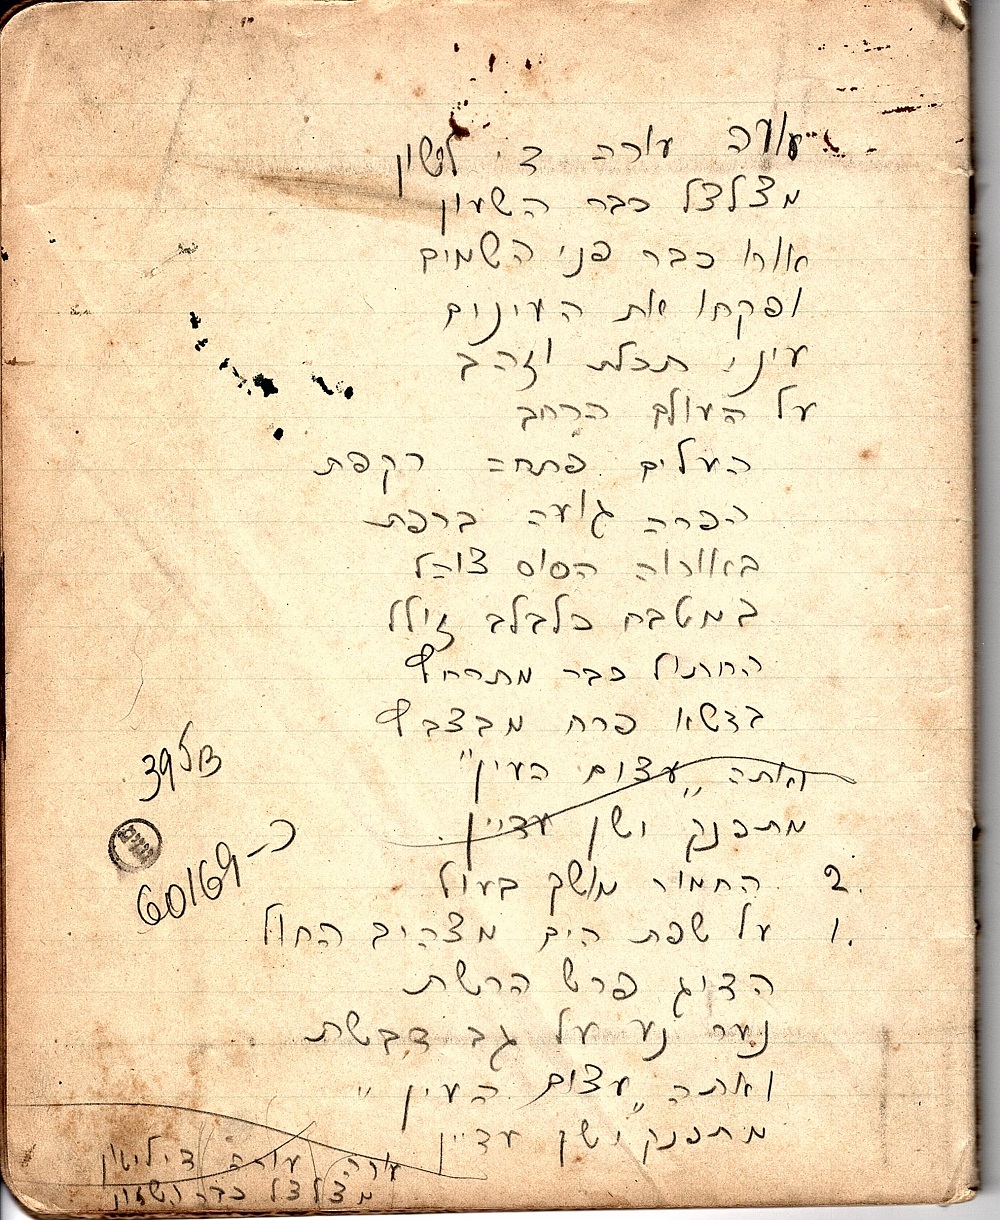 עורה עורה די לישון
מצלצל כבר השעון
אורו כבר פני השמים
ופקחו את העינים
עיני תכלת וזהב
על העולם הרחב
העלים פתחה רקפת
הפרה גועה ברפת
באוורוה הסוס צוהל
במטבח כלבלב זולל
החתול כבר מתרחץ
בדשא פרח מבצבץ
ואתה „עצום העין"
מתפנק ישן עדיין.
2. החמור מושך בעול
1. על שפת הים מצהיב החול
הדיג פרש הרשת
נער נע על גב דבשת
ואתה „עצום העין"
מתפנק ישן עדיין
עורה עורה די לישון
מצלצל כבר השעון
כ-60169